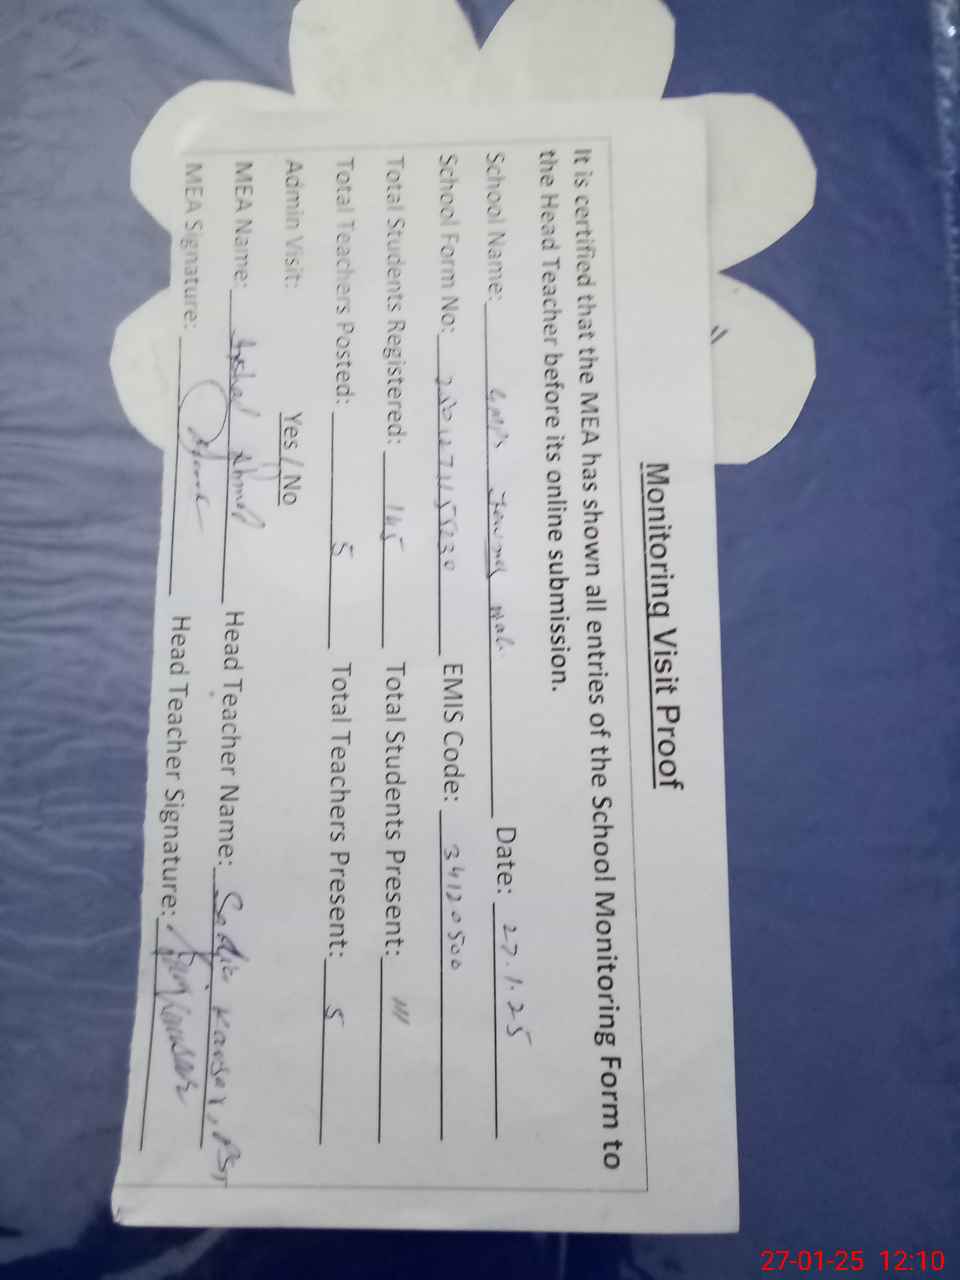 Monitoring Visit Proof
It is certified that the MEA has shown all entries of the School Monitoring Form to
the Head Teacher before its online submission.
School Name: Date: 27.1.25
School Form No: EMIS Code: 34120500
Total Students Registered: 145 Total Students Present: 111
Total Teachers Posted: 5 Total Teachers Present: 5
Admin Visit: Yes / No
MEA Name: Ahmad Head Teacher Name: Sadia Kausar, PST
MEA Signature: Head Teacher Signature:
27-01-25 12:10